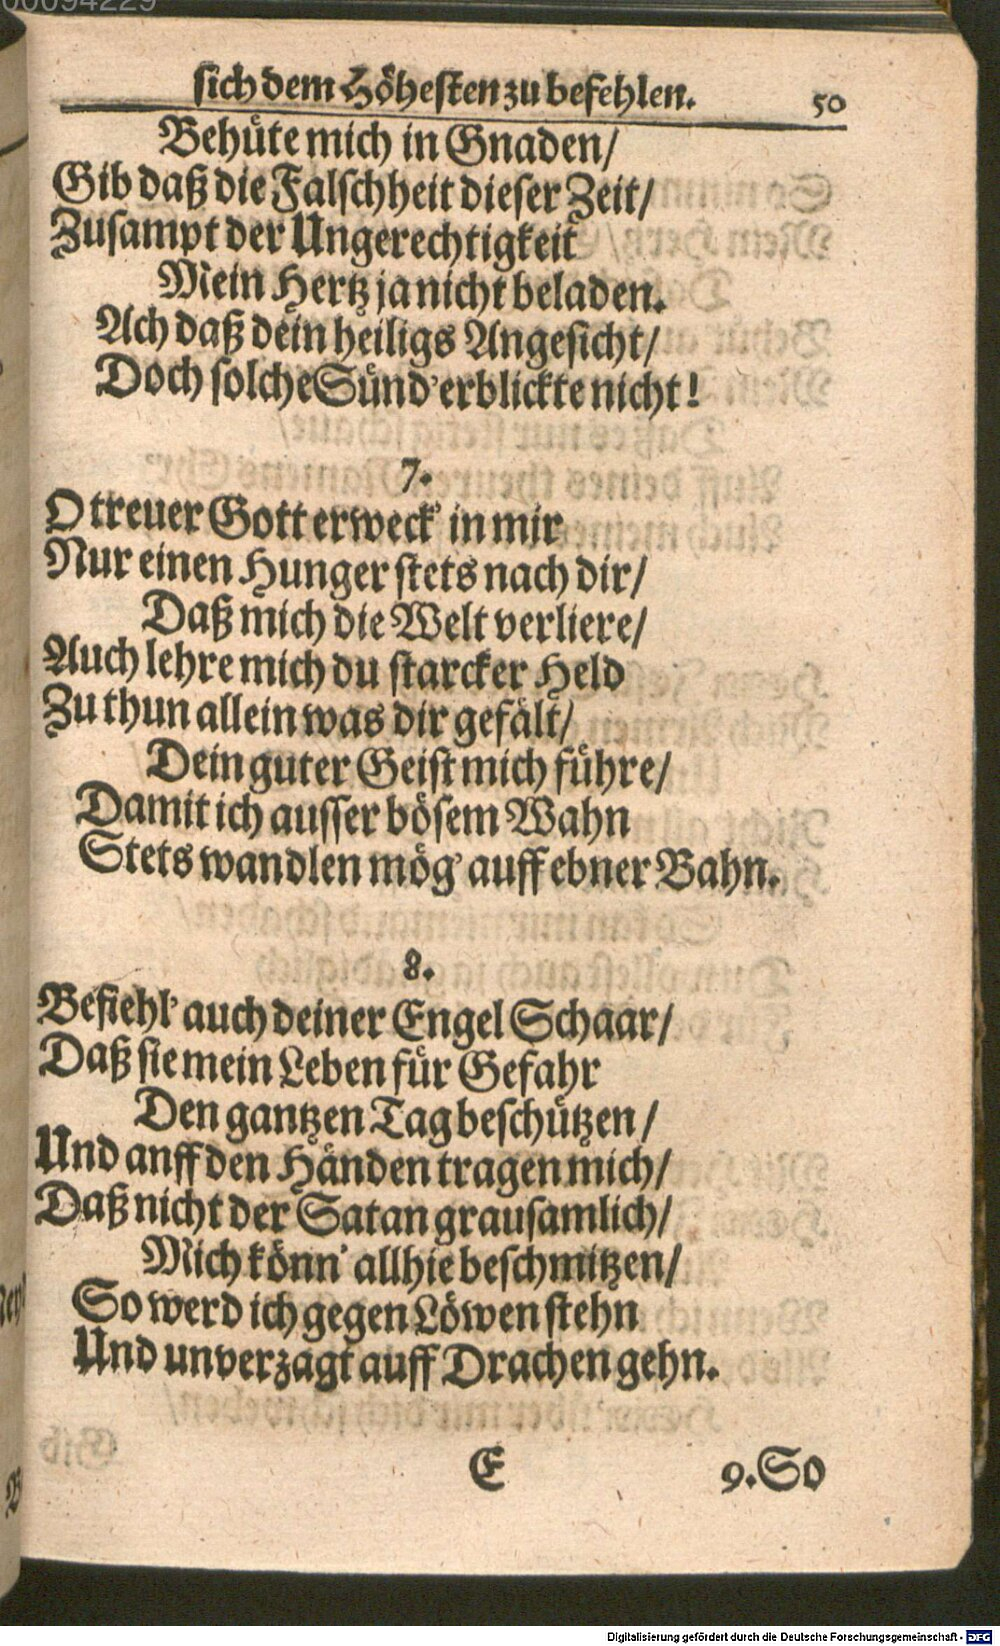 00094229
sich dem Höhesten zu befehlen. 50
Behüte mich in Gnaden/
Gib daß die Falschheit dieser Zeit/
Zusampt der Ungerechtigkeit
Mein Hertz ja nicht beladen.
Ach daß dein heiligs Angesicht/
Doch solche Sünd' erblickte nicht!
7.
O treuer Gott erweck' in mir
Nur einen Hunger stets nach dir/
Daß mich die Welt verliere/
Auch lehre mich du starcker Held
Zu thun allein was dir gefält/
Dein guter Geist mich führe/
Damit ich ausser bösem Wahn
Stets wandlen mög' auff ebner Bahn.
8.
Befiehl' auch deiner Engel Schaar/
Daß sie mein Leben für Gefahr
Den gantzen Tag beschützen/
Und anff den Händen tragen mich/
Daß nicht der Satan grausamlich/
Mich könn' allhie beschmitzen/
So werd ich gegen Löwen stehn
Und unverzagt auff Drachen gehn.
E 9. So
Digitalisierung gefördert durch die Deutsche Forschungsgemeinschaft - DFG